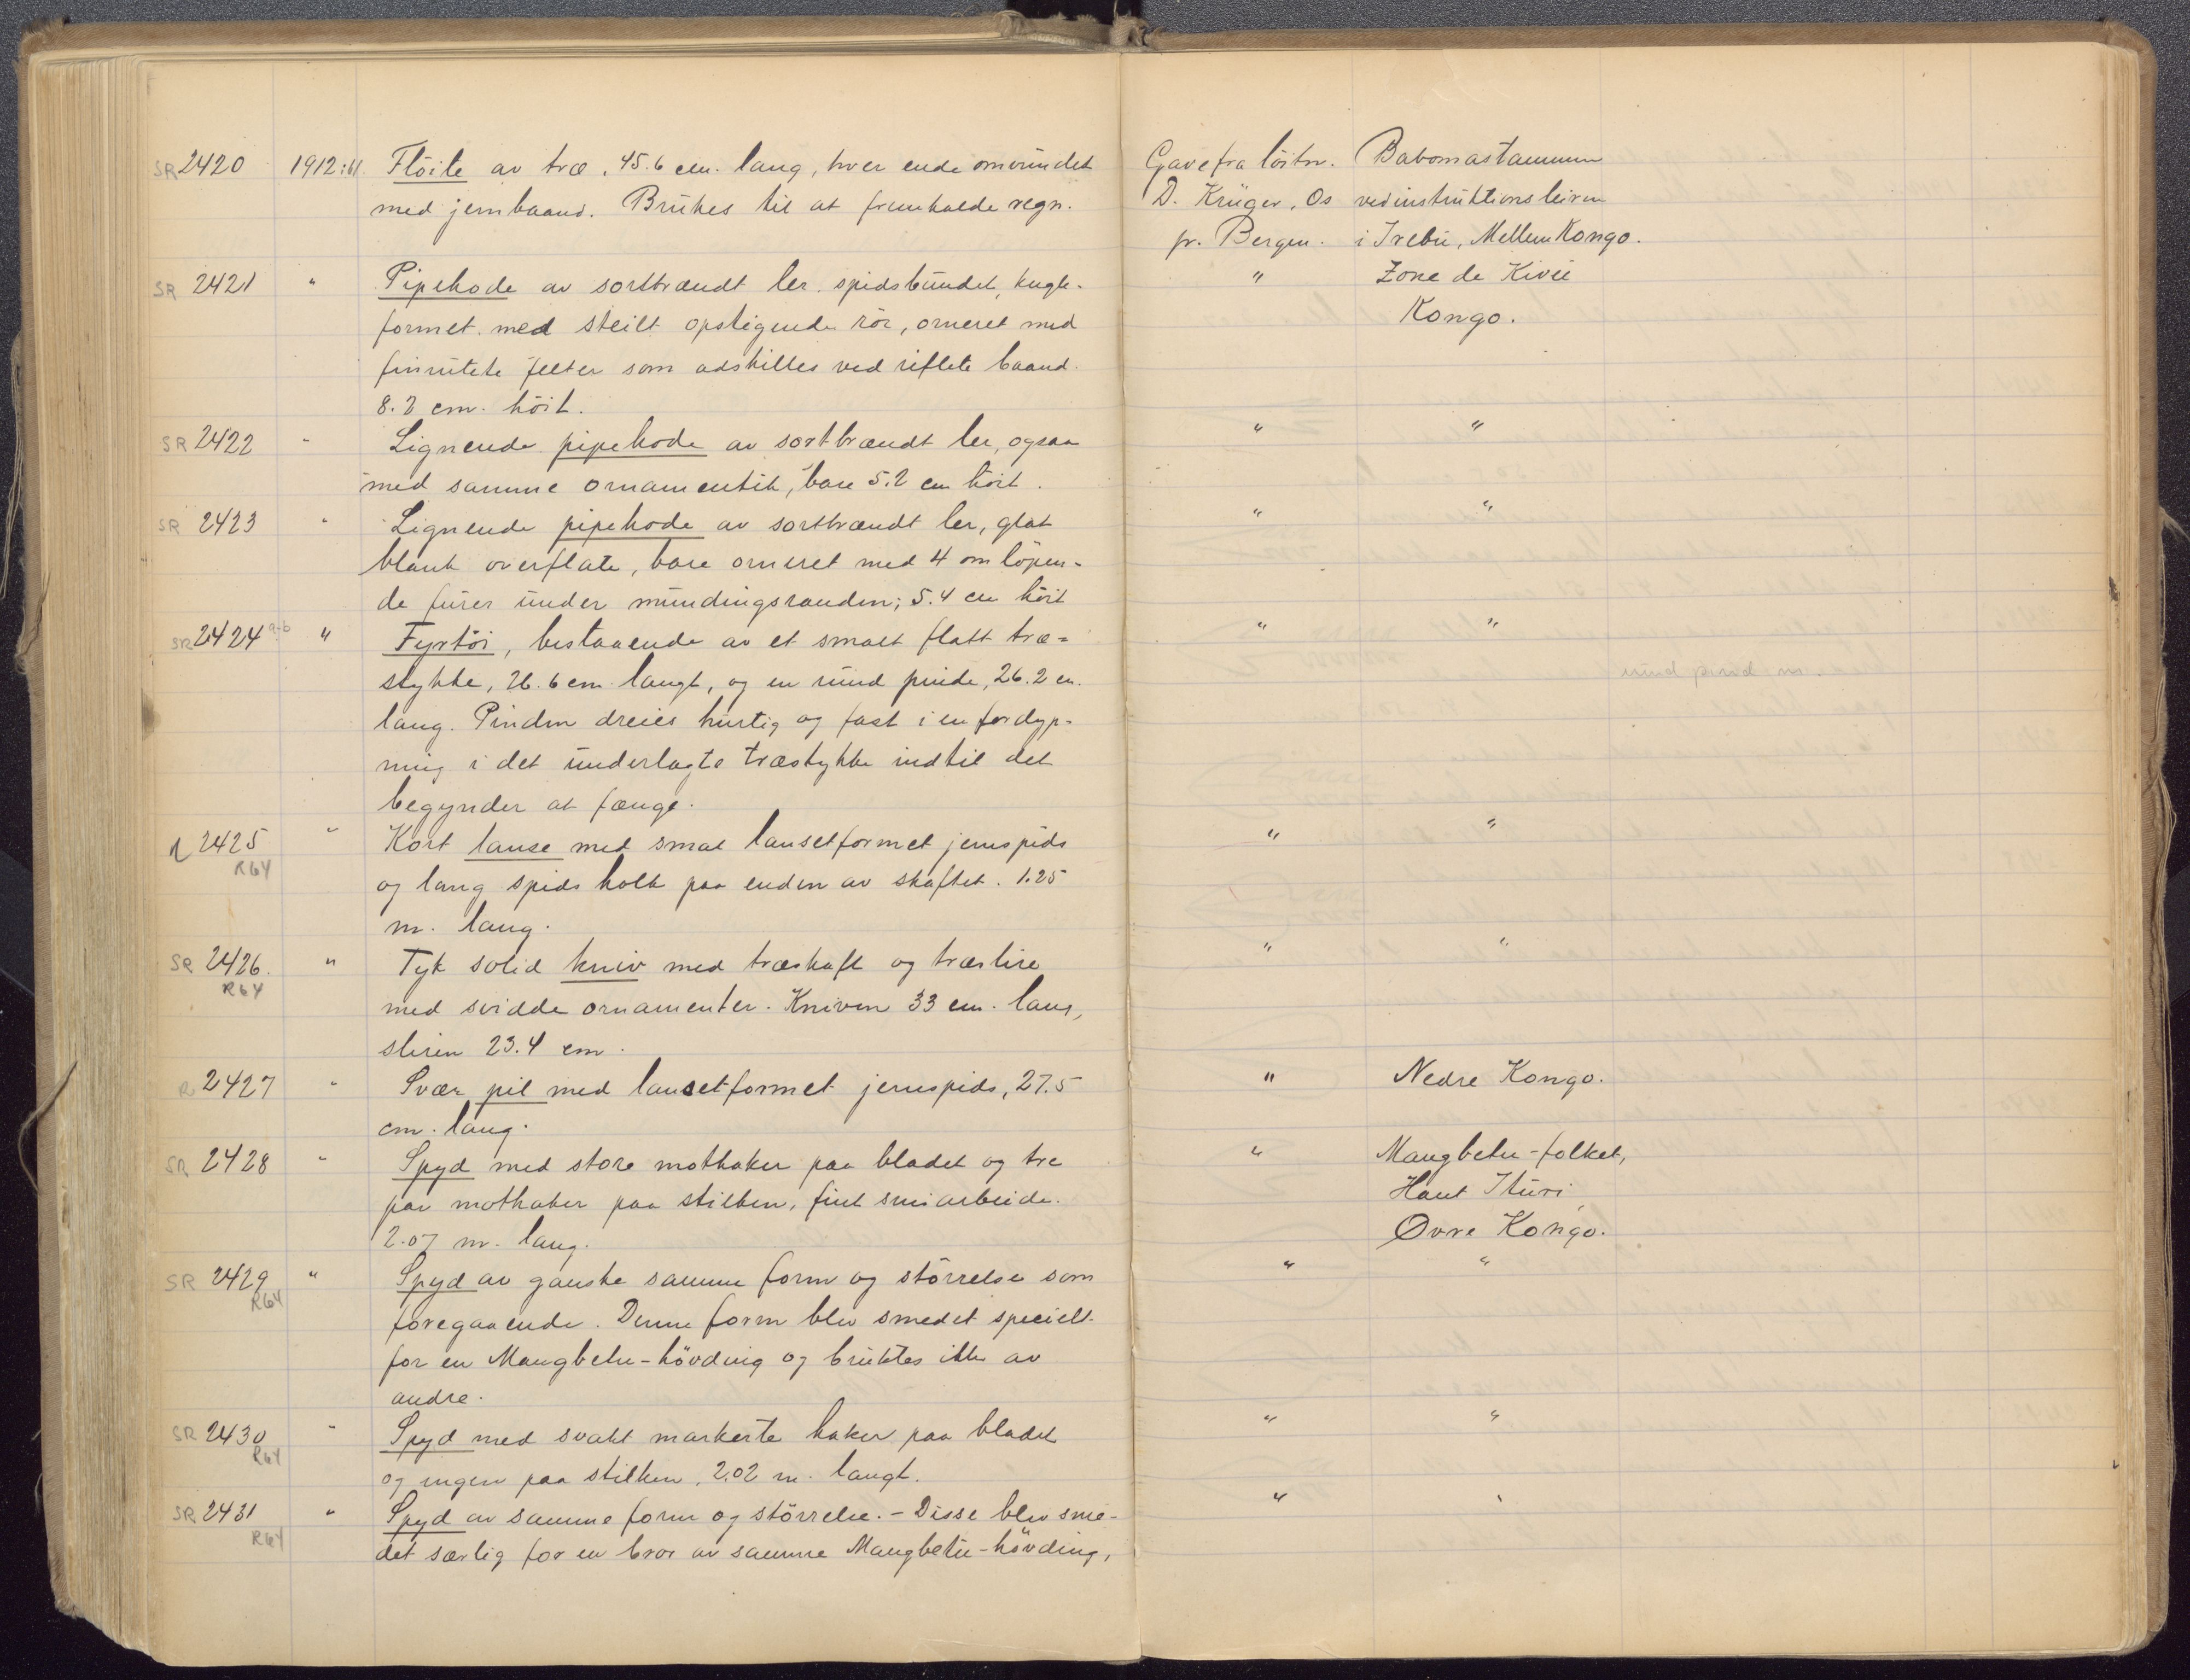 SR 2420 1912:61. Flöite av træ, 45.6 cm. lang, hver ende omvundet Gave fra löitn. Babomastammen
med jernbaand. Brukes til at fremkalde regn. D. Krüger, Os ved instruktionsleiren
pr. Bergen. i Irebu, Mellem Kongo.
SR 2421 " Pipehode av sortbrændt ler, spidsbundet, kugle- " Zone de Kivu
formet med steilt opstigende rör, orneret med Kongo.
finrutete felter som adskilles ved riflete baand.
8.2 cm. höit.
SR 2422 " Lignende pipehode av sortbrændt ler, ogsaa " "
med samme ornamentik, bare 5.2 cm höit.
SR 2423 " Lignende pipehode av sortbrændt ler, glat " "
blank overflate, bare orneret med 4 omlöpen-
de furer under mundingsranden; 5.4 cm höit
SR 2424 a-b " Fyrtöi, bestaaende av et smalt flatt træ= " "
stykke, 26.6 cm langt, og en rund pinde, 26.2 cm. rund pind m.
lang. Pinden dreies hurtig og fast i en fordyp-
ning i det underlagte træstykke indtil det
begynder at fænge.
R 2425 " Kort lanse med smal lansetformet jernspids " "
R64
og lang spids holk paa enden av skaftet. 1.25
m. lang.
SR 2426. " Tyk solid kniv med træskaft og træslire " "
R64
med svidde ornamenter. Kniven 33 cm. lang,
sliren 23.4 cm.
R 2427 " Svær pil med lancetformet jernspids, 27.5 " Nedre Kongo.
cm. lang.
SR 2428 " Spyd med store mothaker paa bladet og tre " Mangbetu-folket,
par mothaker paa stilken, fint smiarbeide. Haut Ituri,
2.07 m. lang. Øvre Kongo.
SR 2429 " Spyd av ganske samme form og störrelse som " "
R64
foregaaende. Denne form blev smedet specielt
for en Mangbetu-hövding og bruktes ikke av
andre.
SR 2430 " Spyd med svakt markerte haker paa bladet " "
R64
og ingen paa stilken, 2.02 m. langt.
SR 2431 " Spyd av samme form og störrelse. - Disse blev sme- " "
R64
det særlig for en bror av samme Mangbetu-hövding,